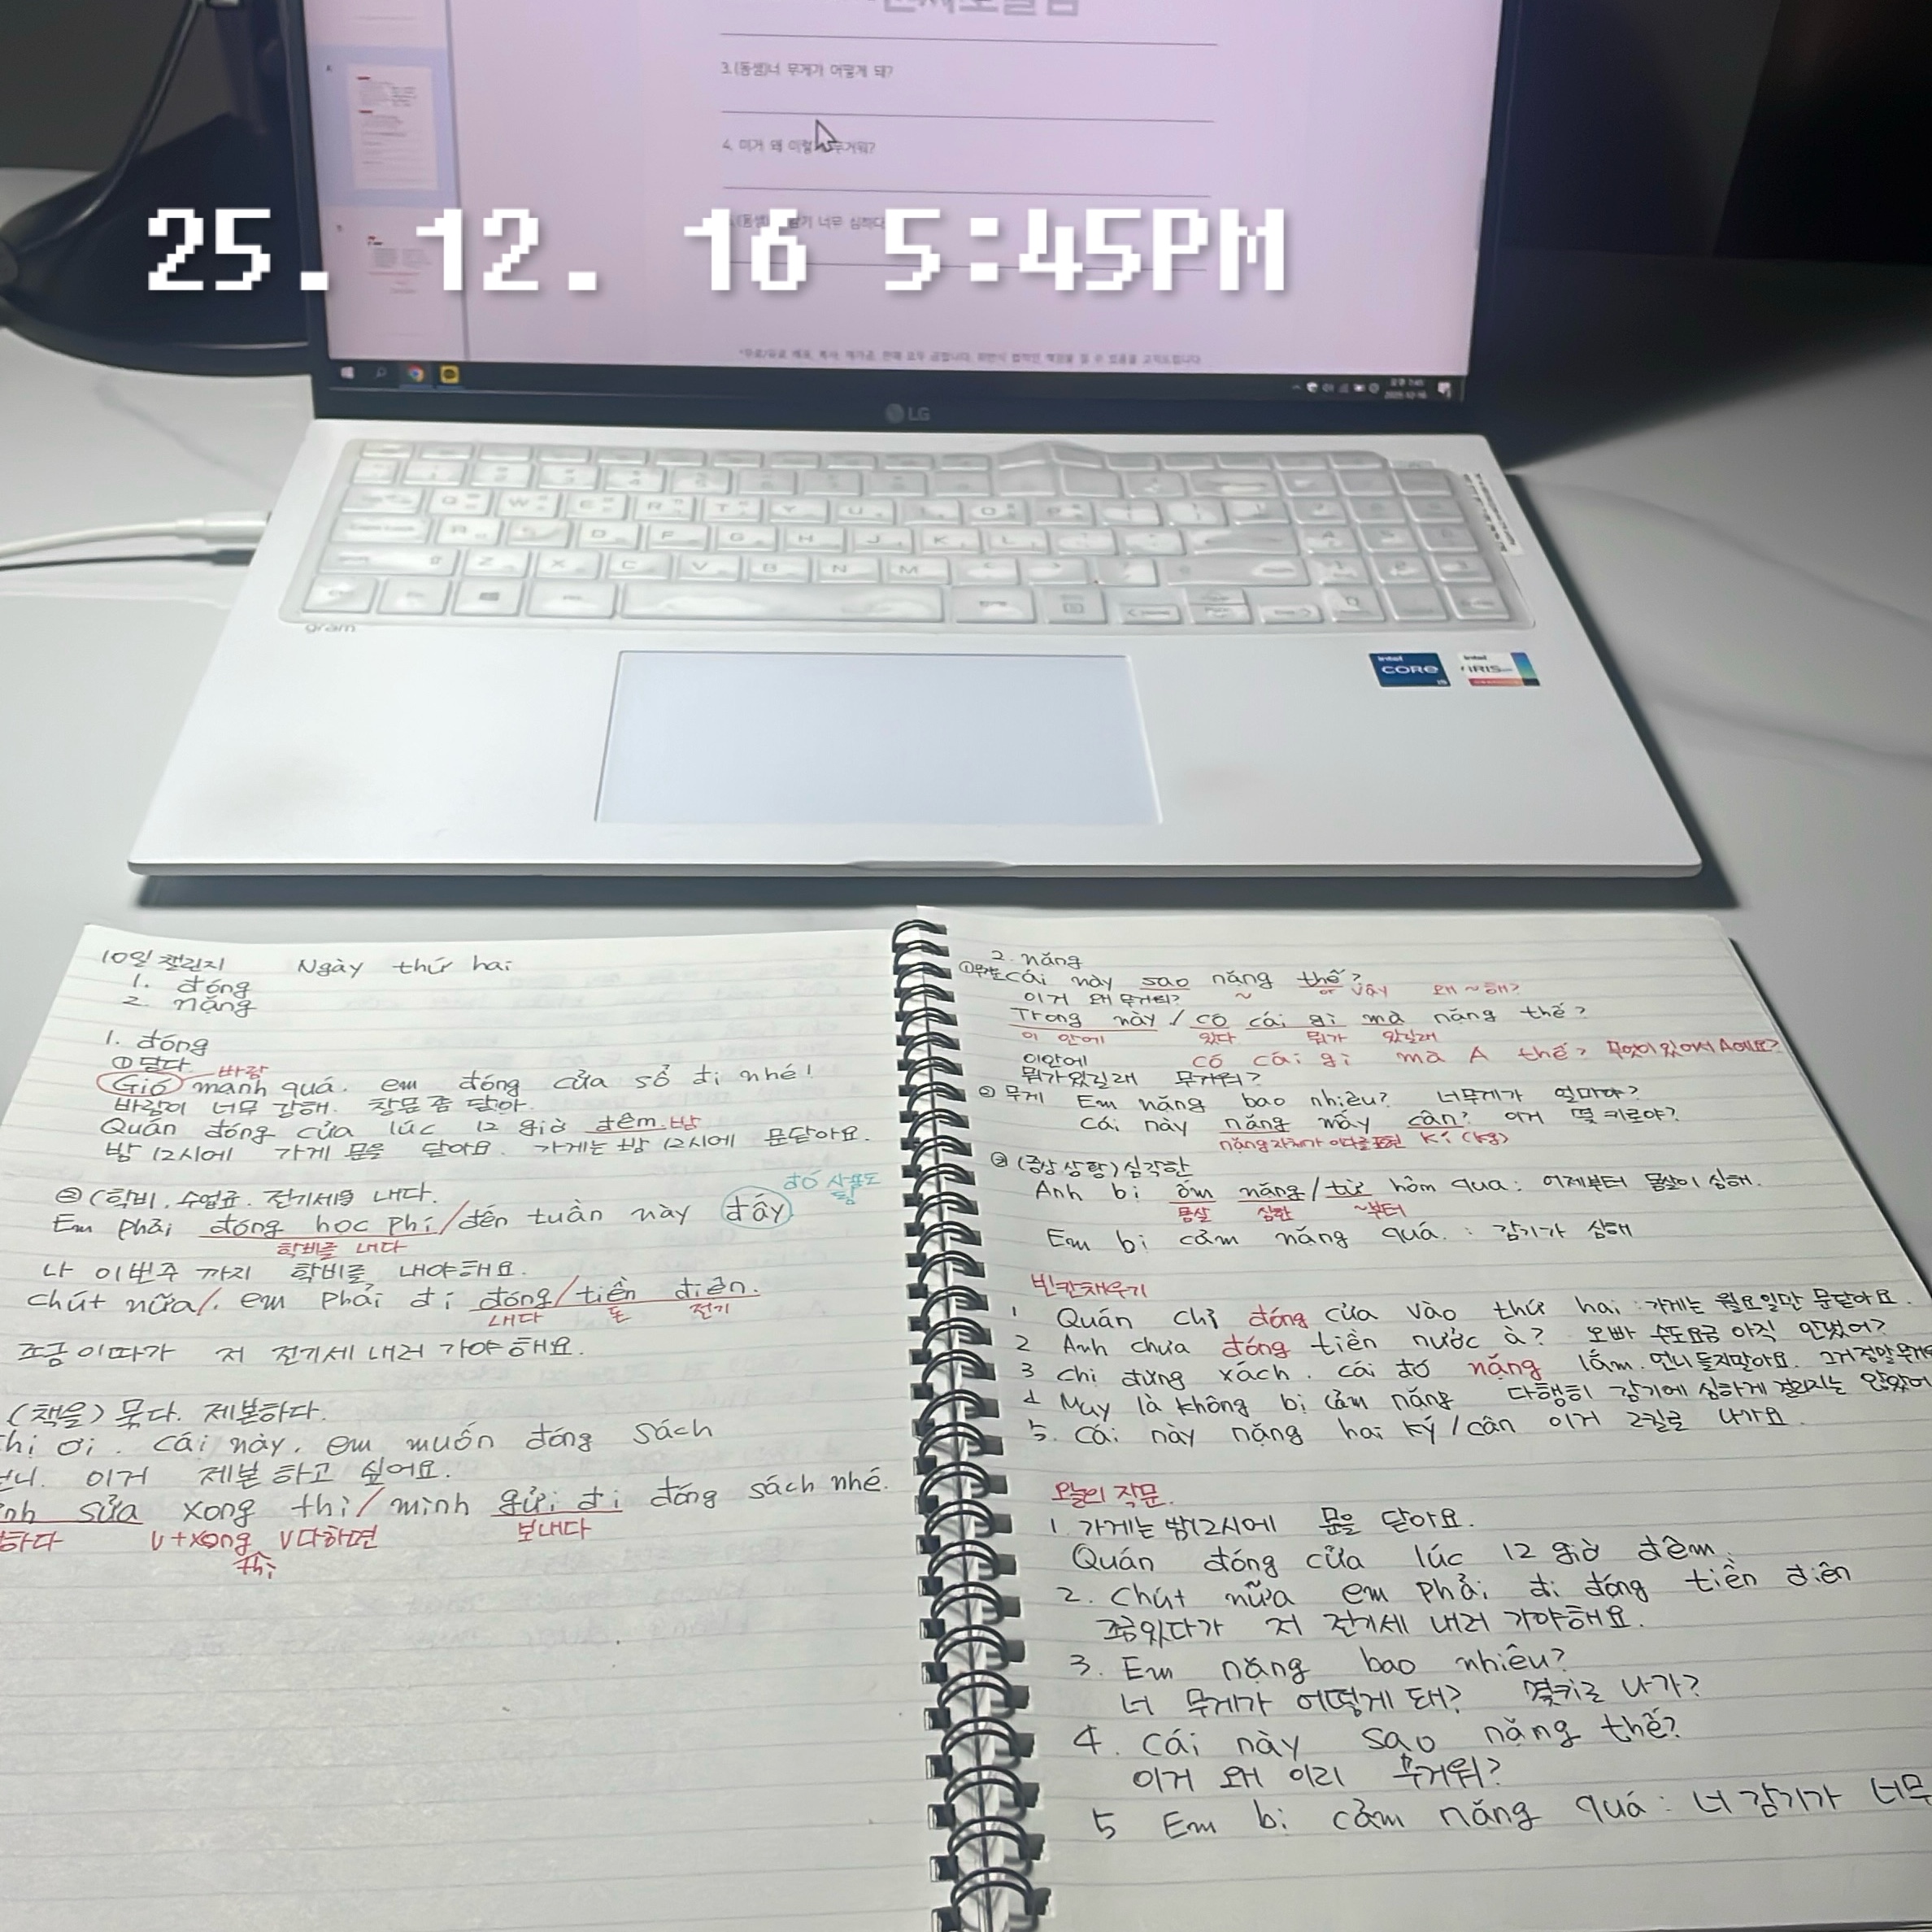 3.(동생)너 무게가 어떻게 돼?
4. 이거 왜 이렇 무거워?
(동생) 감기 너무 심하다
25. 12. 16 5:45PM
LG
Q W E R T Y U I O P
A S D F G H J K L
Z X C V B N M
gram
intel CORE i5
intel IRIS
10일 챌린지 Ngày thứ hai
1. đóng
2. nặng
1. đóng
① 닫다 바람
Gió mạnh quá. em đóng cửa sổ đi nhé!
바람이 너무 강해. 창문 좀 닫아.
Quán đóng cửa lúc 12 giờ đêm. 밤
밤 12시에 가게 문을 닫아요. 가게는 밤 12시에 문닫아요.
② (학비. 수업료. 전기세)를 내다.
đó 사용도 됨
Em phải đóng học phí / đến tuần này đấy
학비를 내다
나 이번주 까지 학비를 내야해요.
Chút nữa/. em phải đi đóng / tiền điện.
내다 돈 전기
조금이따가 저 전기세 내러 가야해요.
(책을) 묶다. 제본하다.
hị ơi. cái này. em muốn đóng sách
니. 이거 제본 하고 싶어요.
nh sửa xong thì / mình gửi đi đóng sách nhé.
하다 V+xong V다하면 보내다
thì
2. nặng
① cái này sao nặng thế?
or vậy 왜 ~ 해?
이거 왜 무거워? ~
Trong này / có cái gì mà nặng thế?
이 안에 있다 뭐가 있길래
이안에 có cái gì mà A thế? 무엇이 있어서 A예요?
뭐가있길래 무거워?
② 무게 Em nặng bao nhiêu? 너무게가 얼마야?
cái này nặng mấy cân? 이거 몇 키로야?
nặng 자체가 이다를 표현 kí (kg)
③ (증상 상황) 심각한
Anh bị ốm nặng / từ hôm qua: 어제부터 몸살이 심해.
몸살 심한 ~부터
Em bị cảm nặng quá. : 감기가 심해
빈칸채우기
1 Quán chỉ đóng cửa vào thứ hai : 가게는 월요일만 문닫아요.
2 Anh chưa đóng tiền nước à? 오빠 수도요금 아직 안냈어?
3 chị đừng xách. cái đó nặng lắm. 언니 들지말아요. 그거 정말
4 May là không bị cảm nặng 다행히 감기에 심하게 걸리지는 않았어
5. cái này nặng hai ký / cân 이거 2킬로 나가요.
오늘의 작문.
1. 가게는 밤12시에 문을 닫아요.
Quán đóng cửa lúc 12 giờ đêm.
2. Chút nữa em phải đi đóng tiền điện
조금있다가 저 전기세 내러 가야해요.
3. Em nặng bao nhiêu?
너 무게가 어떻게 돼? 몇키로 나가?
4. cái này sao nặng thế?
이거 왜 이리 무거워?
5 Em bị cảm nặng quá: 너 감기가 너무